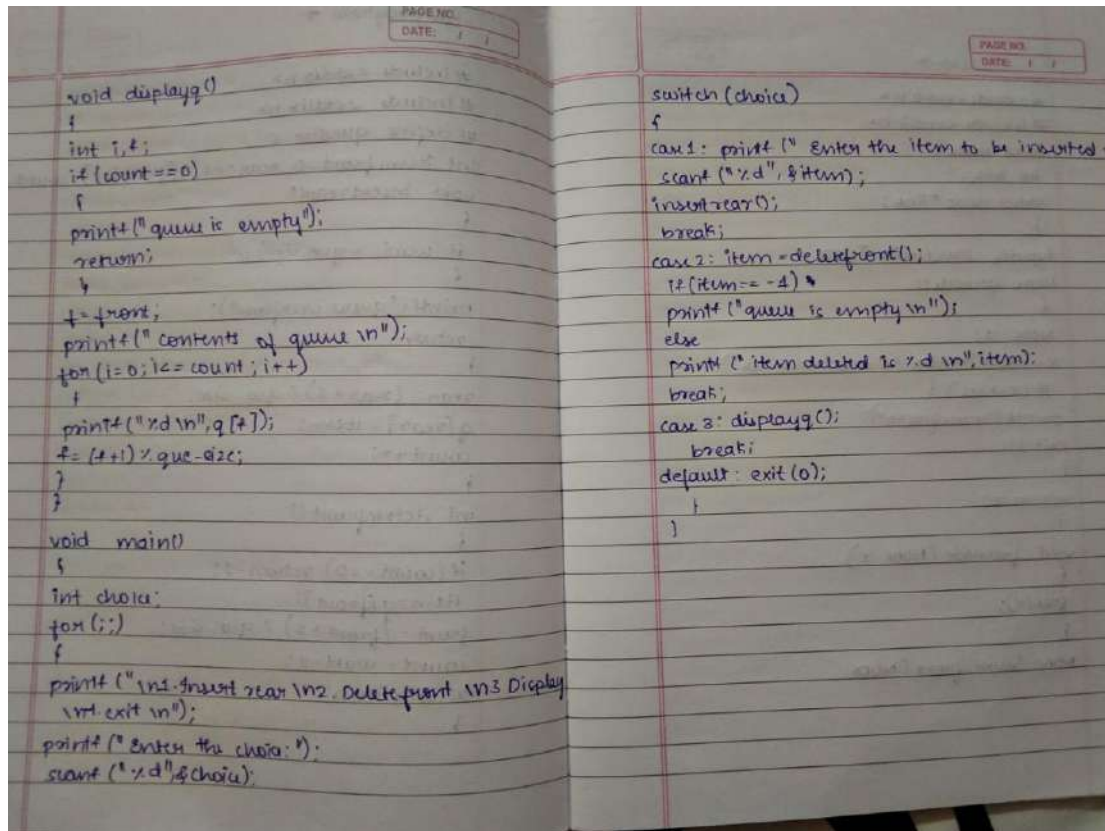 PAGE NO.
DATE: / /
void displayq()
{
int i,f;
if (count==0)
{
printf("queue is empty");
return;
}
f=front;
printf(" contents of queue \n");
for (i=0; i<= count; i++)
{
printf("%d \n", q[f]);
f= (f+1) % que-size;
}
}
void main()
{
int choice;
for (;;)
{
printf ("\n1.Insert rear \n2. Delete front \n3 Display
\n4.exit \n");
printf (" Enter the choice: ");
scanf ("%d",&choice);
PAGE NO.
DATE: / /
switch (choice)
{
case 1: printf (" Enter the item to be inserted
scanf ("%d", &item);
insertrear();
break;
case 2: item =deletefront();
if (item== -1)
printf ("queue is empty \n");
else
printf (" item deleted is %d \n", item);
break;
case 3: displayq();
break;
default: exit (0);
}
}